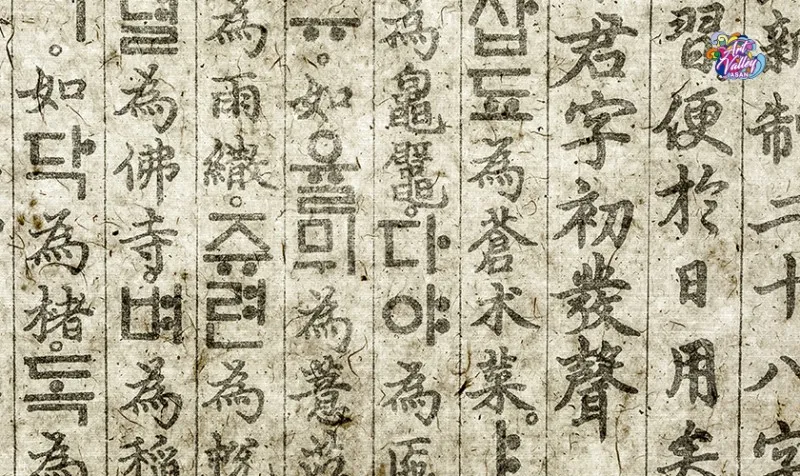 Art
Valley
ASAN
新制二十八字
習便於日用矣
君字初發聲
삽됴為蒼朮菜。
為鼊。다야為匜
ㅠ。如율믜為薏苡
為雨繖。쥬련為帨
뎔為佛寺벼為稻
。如닥為楮。독為